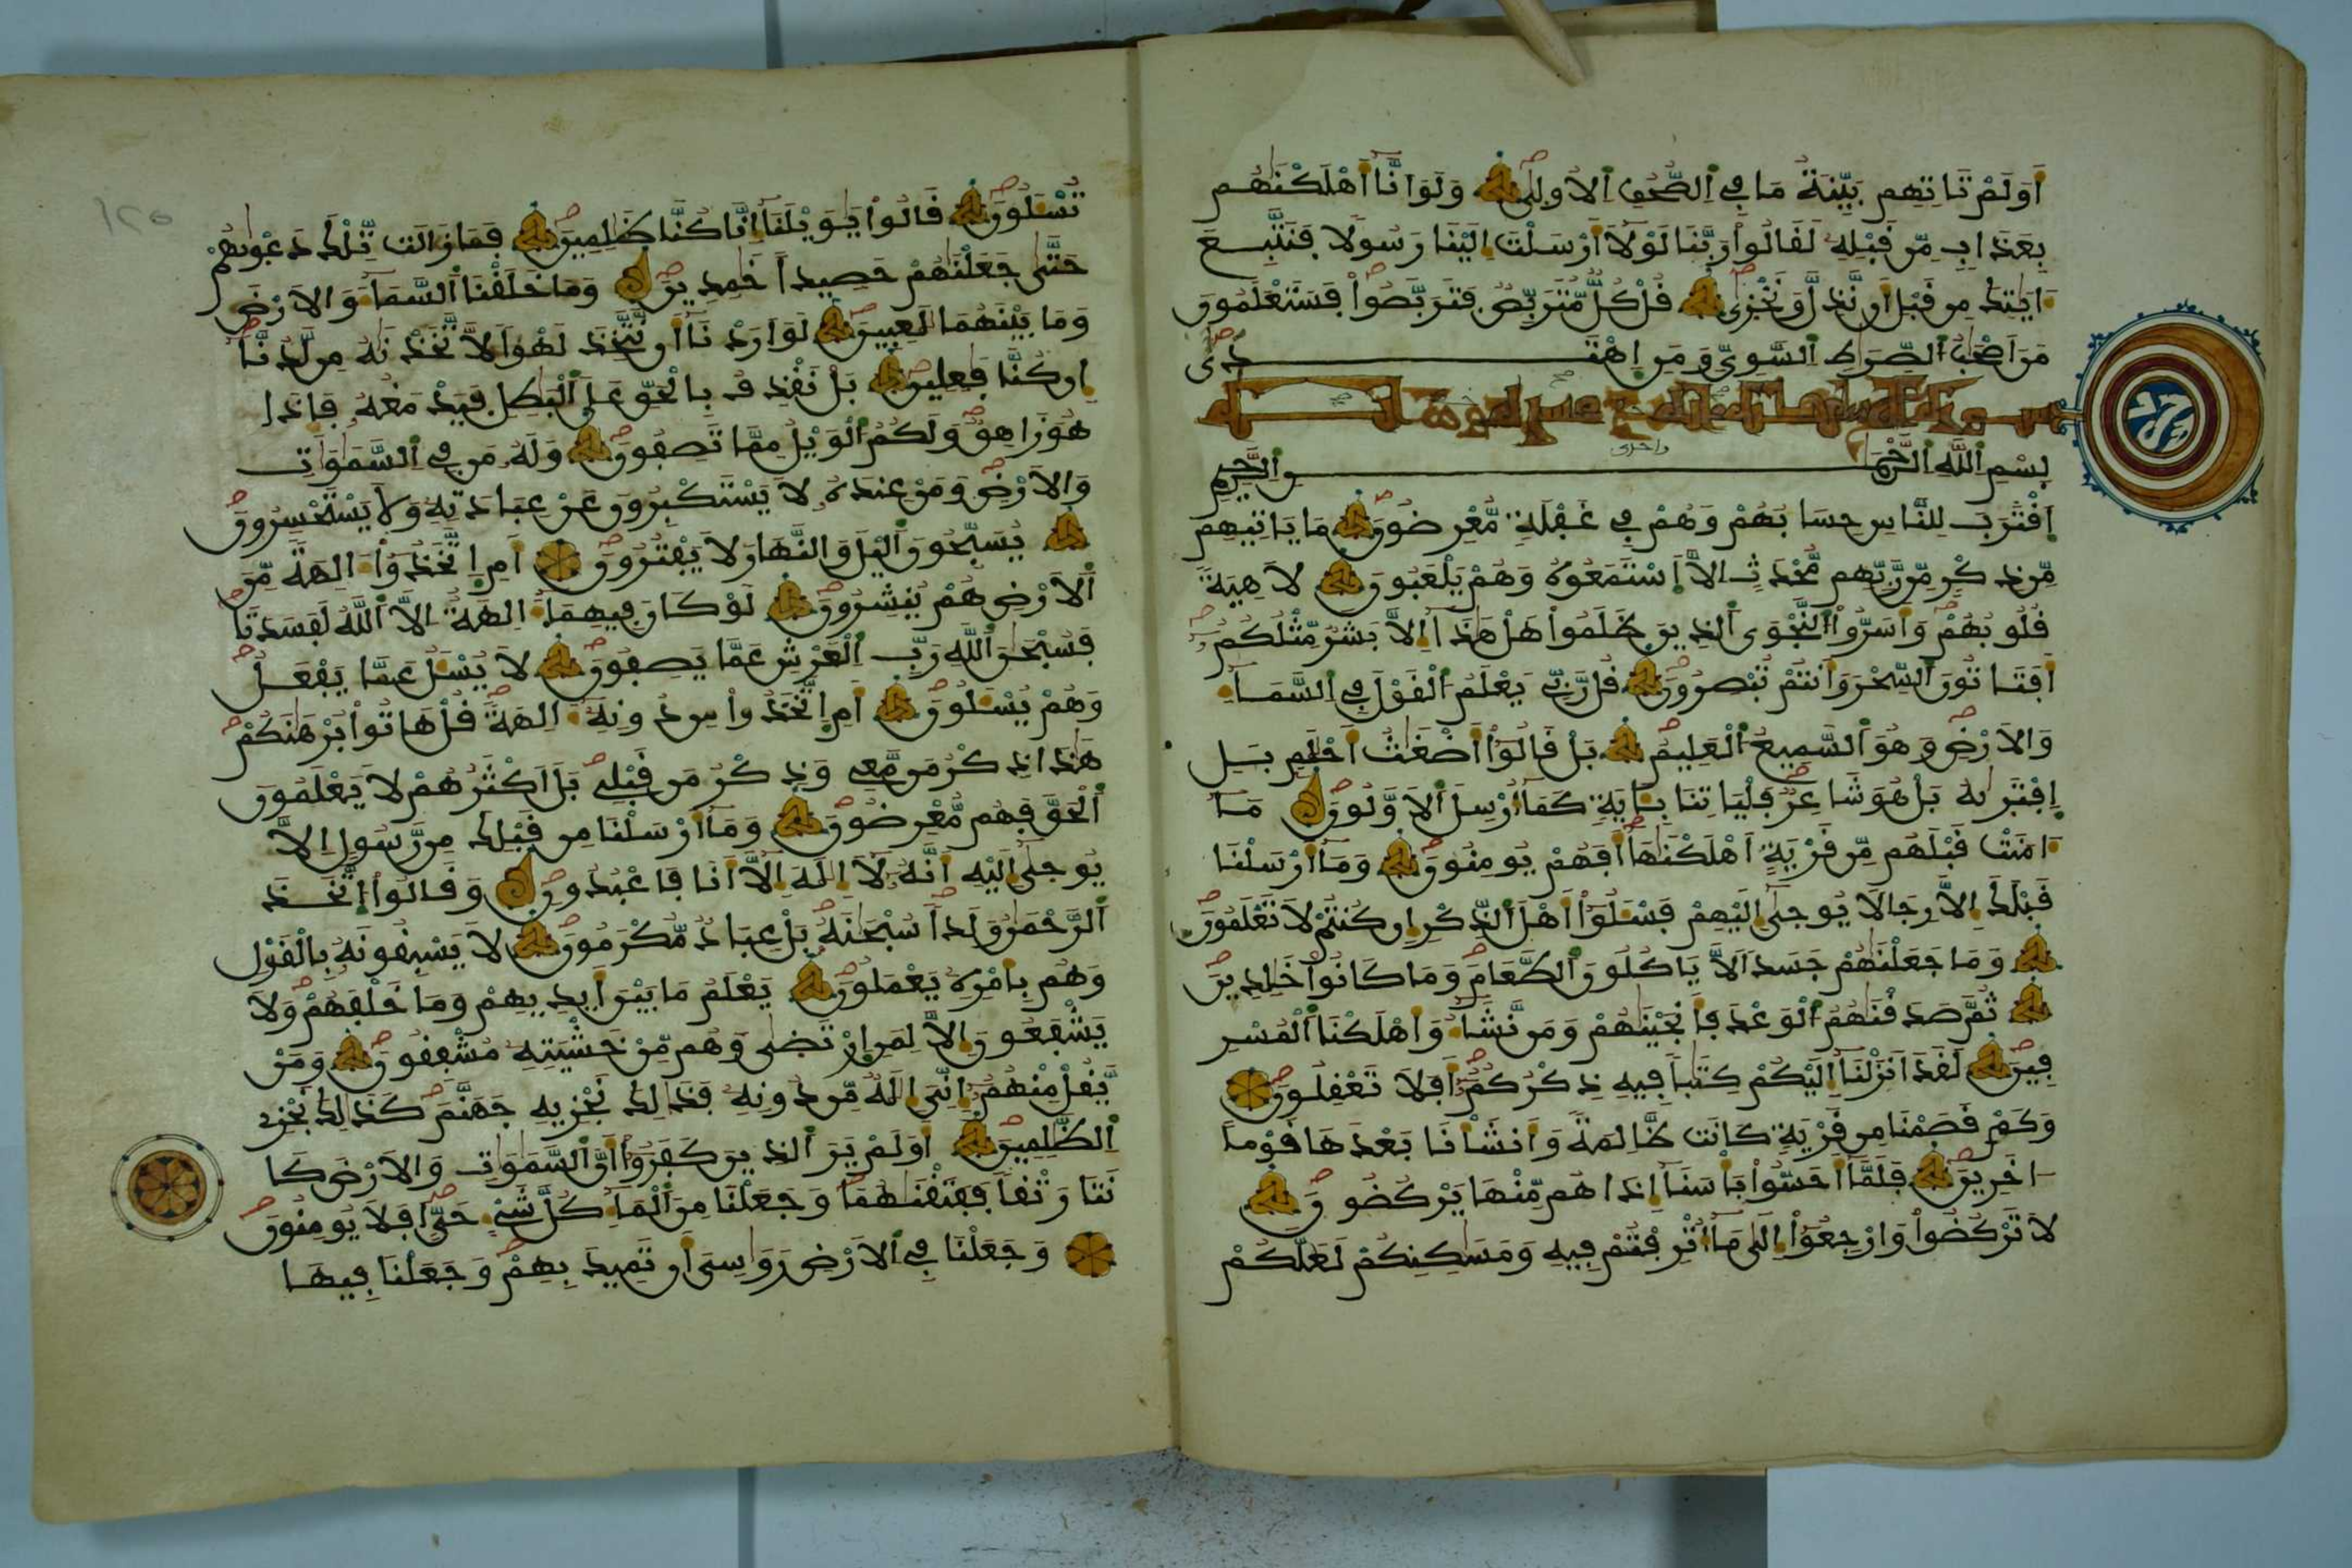 اَوَلَمْ تَاتِهِم بَيِّنَةُ مَا فِي اِ۬لصُّحُفِ اِ۬لُاولۭيٰ وَلَوَ اَنَّآ أَهْلَكْنَٰهُم
بِعَذَابٖ مِّن قَبْلِهِۦ لَقَالُواْ رَبَّنَا لَوْلَآ أَرْسَلْتَ إِلَيْنَا رَسُولاٗ فَنَتَّبِعَ
ءَايَٰتِكَ مِن قَبْلِ أَن نَّذِلَّ وَنَخْزۭيٰ قُلْ كُلّٞ مُّتَرَبِّصٞ فَتَرَبَّصُواْ فَسَتَعْلَمُونَ
مَنَ اَصْحَٰبُ اُ۬لصِّرَٰطِ اِ۬لسَّوِيِّ وَمَنِ اِهْتَدۭيٰ
بِسْمِ اِ۬للَّهِ اِ۬لرَّحْمَٰنِ اِ۬لرَّحِيمِ
اِ۪قْتَرَبَ لِلنَّاسِ حِسَابُهُمْ وَهُمْ فِي غَفْلَةٖ مُّعْرِضُونَ مَا يَاتِيهِم
مِّن ذِكْرٖ مِّن رَّبِّهِم مُّحْدَثٍ اِلَّا اَ۪سْتَمَعُوهُ وَهُمْ يَلْعَبُونَ لَاهِيَةٗ
قُلُوبُهُمْ وَأَسَرُّواْ اُ۬لنَّجْوَى اَ۬لذِينَ ظَلَمُواْ هَلْ هَٰذَآ إِلَّا بَشَرٞ مِّثْلُكُمُۥٓ
أَفَتَاتُونَ اَ۬لسِّحْرَ وَأَنتُمْ تُبْصِرُونَ قُل رَّبِّي يَعْلَمُ اُ۬لْقَوْلَ فِي اِ۬لسَّمَآءِ
وَالَارْضِ وَهُوَ اَ۬لسَّمِيعُ اُ۬لْعَلِيمُ بَلْ قَالُوٓاْ أَضْغَٰثُ أَحْلَٰمِۢ بَلِ
اِ۪فْتَرۭيٰهُ بَلْ هُوَ شَاعِرٞ فَلْيَاتِنَا بِـَٔايَةٖ كَمَآ أُرْسِلَ اَ۬لَاوَّلُونَ مَآ
ءَامَنَتْ قَبْلَهُم مِّن قَرْيَةٍ اَهْلَكْنَٰهَآ أَفَهُمْ يُومِنُونَ وَمَآ أَرْسَلْنَا
قَبْلَكَ إِلَّا رِجَالاٗ يُوحَىٰٓ إِلَيْهِمْ فَسْـَٔلُوٓاْ أَهْلَ اَ۬لذِّكْرِ إِن كُنتُمْ لَا تَعْلَمُونَ
وَمَا جَعَلْنَٰهُمْ جَسَداٗ لَّا يَاكُلُونَ اَ۬لطَّعَامَ وَمَا كَانُواْ خَٰلِدِينَ
ثُمَّ صَدَقْنَٰهُمُ اُ۬لْوَعْدَ فَأَنجَيْنَٰهُمْ وَمَن نَّشَآءُ وَأَهْلَكْنَا اَ۬لْمُسْرِ
فِينَ لَقَدَ اَنزَلْنَآ إِلَيْكُمْ كِتَٰباٗ فِيهِ ذِكْرُكُمُۥٓ أَفَلَا تَعْقِلُونَ
وَكَمْ قَصَمْنَا مِن قَرْيَةٖ كَانَت ظَّالِمَةٗ وَأَنشَأْنَا بَعْدَهَا قَوْماً
ـاخَرِينَ فَلَمَّآ أَحَسُّواْ بَأْسَنَآ إِذَا هُم مِّنْهَا يَرْكُضُونَ
لَا تَرْكُضُواْ وَارْجِعُوٓاْ إِلَىٰ مَآ أُتْرِفْتُمْ فِيهِ وَمَسَٰكِنِكُمْ لَعَلَّكُمْ
تُسْـَٔلُونَ قَالُواْ يَٰوَيْلَنَآ إِنَّا كُنَّا ظَٰلِمِينَ فَمَا زَالَت تِّلْكَ دَعْوۭيٰهُمْ
حَتَّىٰ جَعَلْنَٰهُمْ حَصِيداً خَٰمِدِينَ وَمَا خَلَقْنَا اَ۬لسَّمَآءَ وَالَارْضَ
وَمَا بَيْنَهُمَا لَٰعِبِينَ لَوَ اَرَدْنَآ أَن نَّتَّخِذَ لَهْواٗ لَّاتَّخَذْنَٰهُ مِن لَّدُنَّآ
إِن كُنَّا فَٰعِلِينَ بَلْ نَقْذِفُ بِالْحَقِّ عَلَى اَ۬لْبَٰطِلِ فَيَدْمَغُهُۥ فَإِذَا
هُوَ زَاهِقٞ وَلَكُمُ اُ۬لْوَيْلُ مِمَّا تَصِفُونَ وَلَهُۥ مَن فِي اِ۬لسَّمَٰوَٰتِ
وَالَارْضِ وَمَنْ عِندَهُۥ لَا يَسْتَكْبِرُونَ عَنْ عِبَادَتِهِۦ وَلَا يَسْتَحْسِرُونَ
يُسَبِّحُونَ اَ۬ليْلَ وَالنَّهَارَ لَا يَفْتُرُونَ أَمِ اِ۪تَّخَذُوٓاْ ءَالِهَةٗ مِّنَ
اَ۬لَارْضِ هُمْ يُنشِرُونَ لَوْ كَانَ فِيهِمَآ ءَالِهَةٌ اِلَّا اَ۬للَّهُ لَفَسَدَتَا
فَسُبْحَٰنَ اَ۬للَّهِ رَبِّ اِ۬لْعَرْشِ عَمَّا يَصِفُونَ لَا يُسْـَٔلُ عَمَّا يَفْعَلُ
وَهُمْ يُسْـَٔلُونَ أَمِ اِ۪تَّخَذُواْ مِن دُونِهِۦٓ ءَالِهَةٗ قُلْ هَاتُواْ بُرْهَٰنَكُمْ
هَٰذَا ذِكْرُ مَن مَّعِي وَذِكْرُ مَن قَبْلِي بَلَ اَكْثَرُهُمْ لَا يَعْلَمُونَ
اَ۬لْحَقَّ فَهُم مُّعْرِضُونَ وَمَآ أَرْسَلْنَا مِن قَبْلِكَ مِن رَّسُولٍ اِلَّا
يُوحَىٰٓ إِلَيْهِ أَنَّهُۥ لَآ إِلَٰهَ إِلَّآ أَنَا فَاعْبُدُونِ وَقَالُواْ اُ۪تَّخَذَ
اَ۬لرَّحْمَٰنُ وَلَداٗ سُبْحَٰنَهُۥ بَلْ عِبَادٞ مُّكْرَمُونَ لَا يَسْبِقُونَهُۥ بِالْقَوْلِ
وَهُم بِأَمْرِهِۦ يَعْمَلُونَ يَعْلَمُ مَا بَيْنَ أَيْدِيهِمْ وَمَا خَلْفَهُمْ وَلَا
يَشْفَعُونَ إِلَّا لِمَنِ اِ۪رْتَضَىٰ وَهُم مِّنْ خَشْيَتِهِۦ مُشْفِقُونَ وَمَنْ
يَّقُلْ مِنْهُمُۥٓ إِنِّيَ إِلَٰهٞ مِّن دُونِهِۦ فَذَٰلِكَ نَجْزِيهِ جَهَنَّمَ كَذَٰلِكَ نَجْزِي
اِ۬لظَّٰلِمِينَ أَوَلَمْ يَرَ اَ۬لذِينَ كَفَرُوٓاْ أَنَّ اَ۬لسَّمَٰوَٰتِ وَالَارْضَ كَا
نَتَا رَتْقاٗ فَفَتَقْنَٰهُمَا وَجَعَلْنَا مِنَ اَ۬لْمَآءِ كُلَّ شَيْءٍ حَيٍّ اَفَلَا يُومِنُونَ
وَجَعَلْنَا فِي اِ۬لَارْضِ رَوَٰسِيَ أَن تَمِيدَ بِهِمْ وَجَعَلْنَا فِيهَا